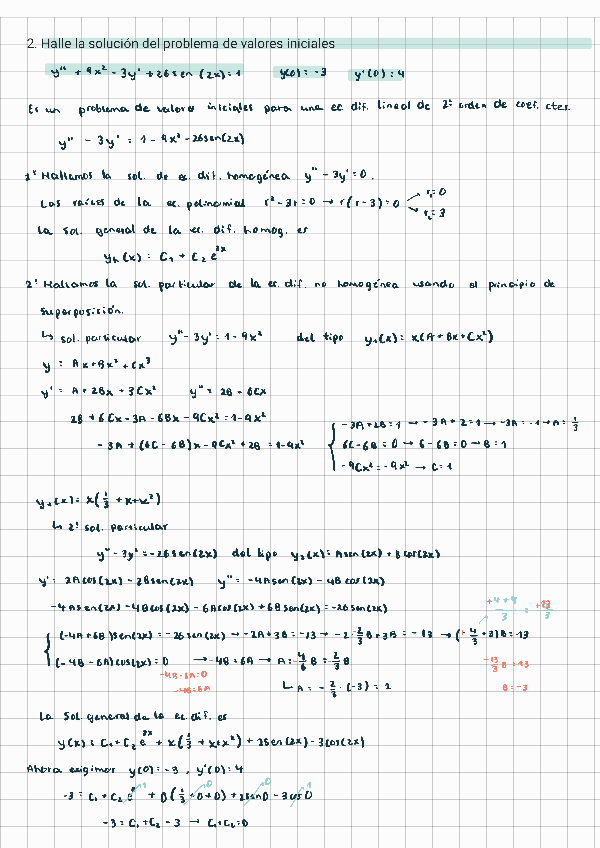 2. Halle la solución del problema de valores iniciales
y'' + 9x² - 3y' + 26 sen (2x) = 1 y(0) = -3 y'(0) = 4
Es un problema de valores iniciales para una ec. dif. lineal de 2º orden de coef. ctes.
y'' - 3y' = 1 - 9x² - 26sen(2x)
1º Hallamos la sol. de ec. dif. homogénea y'' - 3y' = 0.
Las raíces de la ec. polinomial r² - 3r = 0 → r(r - 3) = 0 r₁ = 0 r₂ = 3
La sol. general de la ec. dif. homog. es
yₕ(x) = C₁ + C₂ e³ˣ
2º Hallamos la sol. particular de la ec. dif. no homogénea usando el principio de
superposición.
↳ sol. particular y'' - 3y' = 1 - 9x² del tipo y₁(x) = x(A + Bx + Cx²)
y = Ax + Bx² + Cx³
y' = A + 2Bx + 3Cx² y'' = 2B - 6Cx
2B + 6Cx - 3A - 6Bx - 9Cx² = 1 - 9x²
- 3A + (6C - 6B)x - 9Cx² + 2B = 1 - 9x²
-3A + 2B = 1 → -3A + 2 = 1 → -3A = -1 → A = 1/3
6C - 6B = 0 → 6 - 6B = 0 → B = 1
-9Cx² = -9x² → C = 1
y₁(x) = x(1/3 + x + x²)
↳ 2ª sol. particular
y'' - 3y' = -26sen(2x) del tipo y₂(x) = Asen(2x) + B cos(2x)
y' = 2Acos(2x) - 2Bsen(2x) y'' = -4Asen(2x) - 4B cos(2x)
-4Asen(2x) - 4Bcos(2x) - 6Acos(2x) + 6Bsen(2x) = -26sen(2x)
+4+9/3 = +13/3
(-4A+6B)sen(2x) = -26sen(2x) → -2A+3B = -13 → -2 · 2/3 B + 3B = -13 → (+4/3 + 3)B = 13
(-4B-6A)cos(2x) = 0 → -4B = 6A → A = -4/6 B = -2/3 B
-4B-6A=0
-4B=6A
-13/3 B = 13
B = -3
↳ A = -2/3 · (-3) = 2
La sol. general de la ec. dif. es
y(x) = C₁ + C₂ e³ˣ + x(1/3 + x + x²) + 2sen(2x) - 3cos(2x)
Ahora exigimos y(0) = -3 , y'(0) = 4
-3 = C₁ + C₂ e⁰ + 0(1/3 + 0 + 0) + 2sen0 - 3cos0
-3 = C₁ + C₂ - 3 → C₁ + C₂ = 0